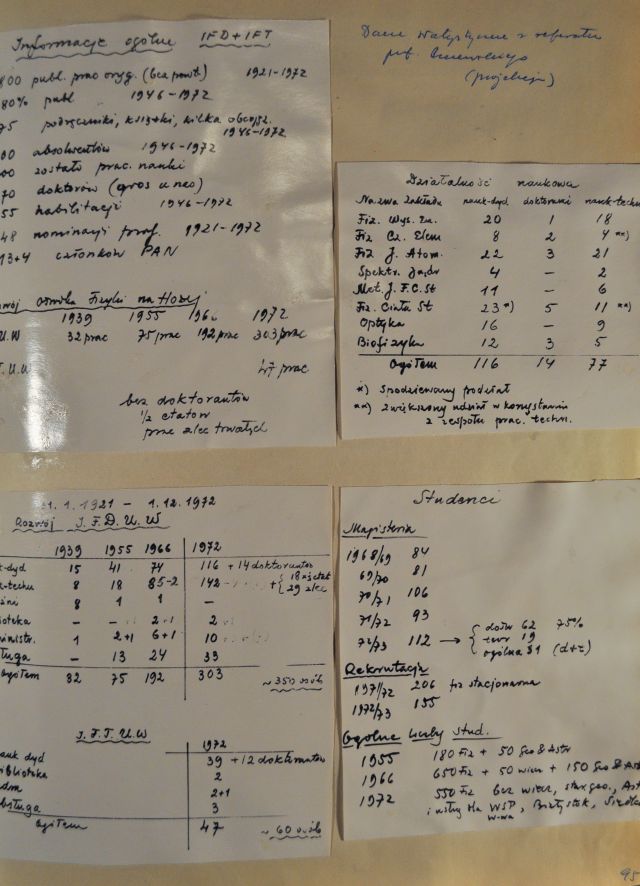 Informacje ogólne IFD + IFT
800 publ. prac oryg. (bez powt.) 1921-1972
80% publ 1946-1972
75 podręczniki, książki, kilka obcojęz.
1946-1972
00 absolwentów 1946-1972
00 zostało prac. nauki
70 doktorów (gros u nas)
55 habilitacji 1946-1972
48 nominacji prof. 1921-1972
13+4 członków PAN
wój ośrodka Fizyki na Hożej
1939 1955 1966 1972
U.W 32 prac 75 prac 192 prac 303 prac
T.U.W 47 prac
bez doktorantów
1/2 etatów
prac zlec
Dane statystyczne z referatu
prof.
(projekcja)
Działalność naukowa
Nazwa Zakładu nauk-dyd doktoranci nauk-techn
Fiz. Wys. En. 20 1 18
Fiz Cz. Elem 8 2 4 **)
Fiz J. Atom. 22 3 21
Spektr. Jądr 4 - 2
Met. J. F. C. St 11 - 6
Fiz. Ciała St 23 *) 5 11 **)
Optyka 16 - 9
Biofizyka 12 3 5
Ogółem 116 14 77
*) Spodziewany podział
**) Zwiększony udział w korzystaniu
z zespołu prac. techn.
1.1.1921 - 1.12.1972
Rozwój I.F.D.U.W
1939 1955 1966 1972
k-dyd 15 41 74 116 + 14 doktorantów
k-techn 8 18 85-2 142 + { 18
29 zlec
8 1 1 -
ioteka - - 2+1 2
ministr. 1 2+1 6+1 10
ługa - 13 24 33
ogółem 32 75 192 303
~ 350 osób
I.F.T.U.W
1972
auk dyd 39 + 12 doktorantów
iblioteka 2
adm 2+1
bsługa 3
ogółem 47 ~ 60 osób
Studenci
Magisteria
1968/69 84
69/70 81
70/71 106
71/72 93
72/73 112 → { dośw 62 75%
teor 19
ogólna 31 (d+t)
Rekrutacja
1971/72 206 fiz stacjonarna
1972/73 155
Ogólne liczby stud.
1955 180 Fiz + 50 Geo & Astr
1966 650 Fiz + 50 wiecz + 150 Geo & Ast
1972 550 Fiz bez wiecz, stac geo., Ast
i WSP, Białystok,
W-wa
95